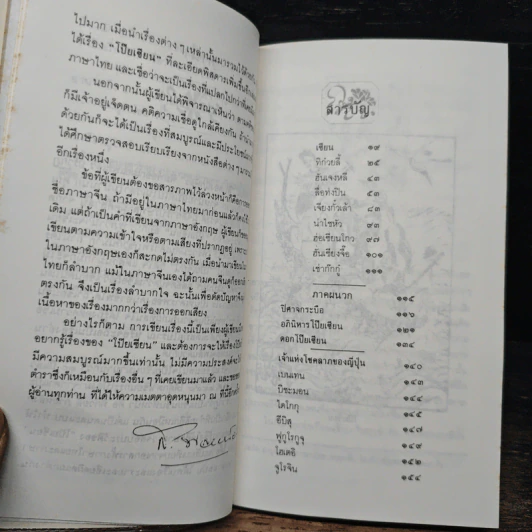 ไปมาก เมื่อนำเรื่องต่าง ๆ เหล่านั้นมารวมไว้ด้วย
ได้เรื่อง “โป๊ยเซียน” ที่ละเอียดพิสดารเพิ่มขึ้น
ภาษาไทย และเชื่อว่าจะเป็นเรื่องที่แปลกไปกว่าที่
นอกจากนั้นผู้เขียนได้พิจารณาเห็นว่า
ก็มีเจ้าอยู่เจ็ดตน คติความเชื่อดูใกล้เคียงกัน
ด้วยกันก็จะได้เป็นเรื่องที่สมบูรณ์และมีประโยชน์
ได้ศึกษาตรวจสอบเรียบเรียงจากหนังสือต่าง ๆ
อีกเรื่องหนึ่ง
ข้อที่ผู้เขียนต้องขอสารภาพไว้ล่วงหน้าก็คือการ
ชื่อภาษาจีน ถ้ามีอยู่ในภาษาไทยมาก่อนแล้วก็
เดิม แต่ถ้าเป็นคำที่เขียนจากภาษาอังกฤษ ผู้เขียน
เขียนตามความเข้าใจหรือตามเสียงที่ปรากฏอยู่
ในภาษาอังกฤษเองก็สะกดไม่ตรงกัน เมื่อนำมาเขียน
ไทยก็ลำบาก แม้ในภาษาจีนเองได้ถามคนจีนดูก็
ตรงกัน จึงเป็นเรื่องลำบากใจ ฉะนั้นเพื่อตัดปัญหา
เนื้อหาของเรื่องมากกว่าเรื่องการออกเสียง
อย่างไรก็ตาม การเขียนเรื่องนี้เป็นเพียงผู้เขียน
อยากรู้เรื่องของ “โป๊ยเซียน” และต้องการจะให้เรื่อง
มีความสมบูรณ์มากขึ้นเท่านั้น ไม่มีความประสงค์จะ
ตำราซึ่งก็เหมือนกับเรื่องอื่น ๆ ที่เคยเขียนมาแล้ว และขอ
ผู้อ่านทุกท่าน ที่ได้ให้ความเมตตาอุดหนุนมา ณ ที่นี้
สารบัญ
เซียน ๑๙
ทิก๋วยลี้ ๒๕
ฮันเจงหลี ๓๕
ลื่อท่งปิน ๕๓
เจียงกั๋วเล้า ๘๓
น่าไชหัว ๙๓
ฮ่อเซียนโกว ๙๗
ฮันเซียงจื๊อ ๑๐๑
เช่าก๊กกู๋ ๑๑๑
ภาคผนวก ๑๑๕
ปีศาจกระบือ ๑๑๖
อภินิหารโป๊ยเซียน ๑๒๐
ดอกโป๊ยเซียน ๑๓๔
เจ้าแห่งโชคลาภของญี่ปุ่น ๑๔๐
เบนเทน ๑๔๓
บิชะมอน
ไดโกกุ ๑๔๕
อีบิสุ ๑๔๗
ฟูกูโรกูจู ๑๔๙
โฮเตอิ ๑๕๒
จูโรจิน ๑๕๔